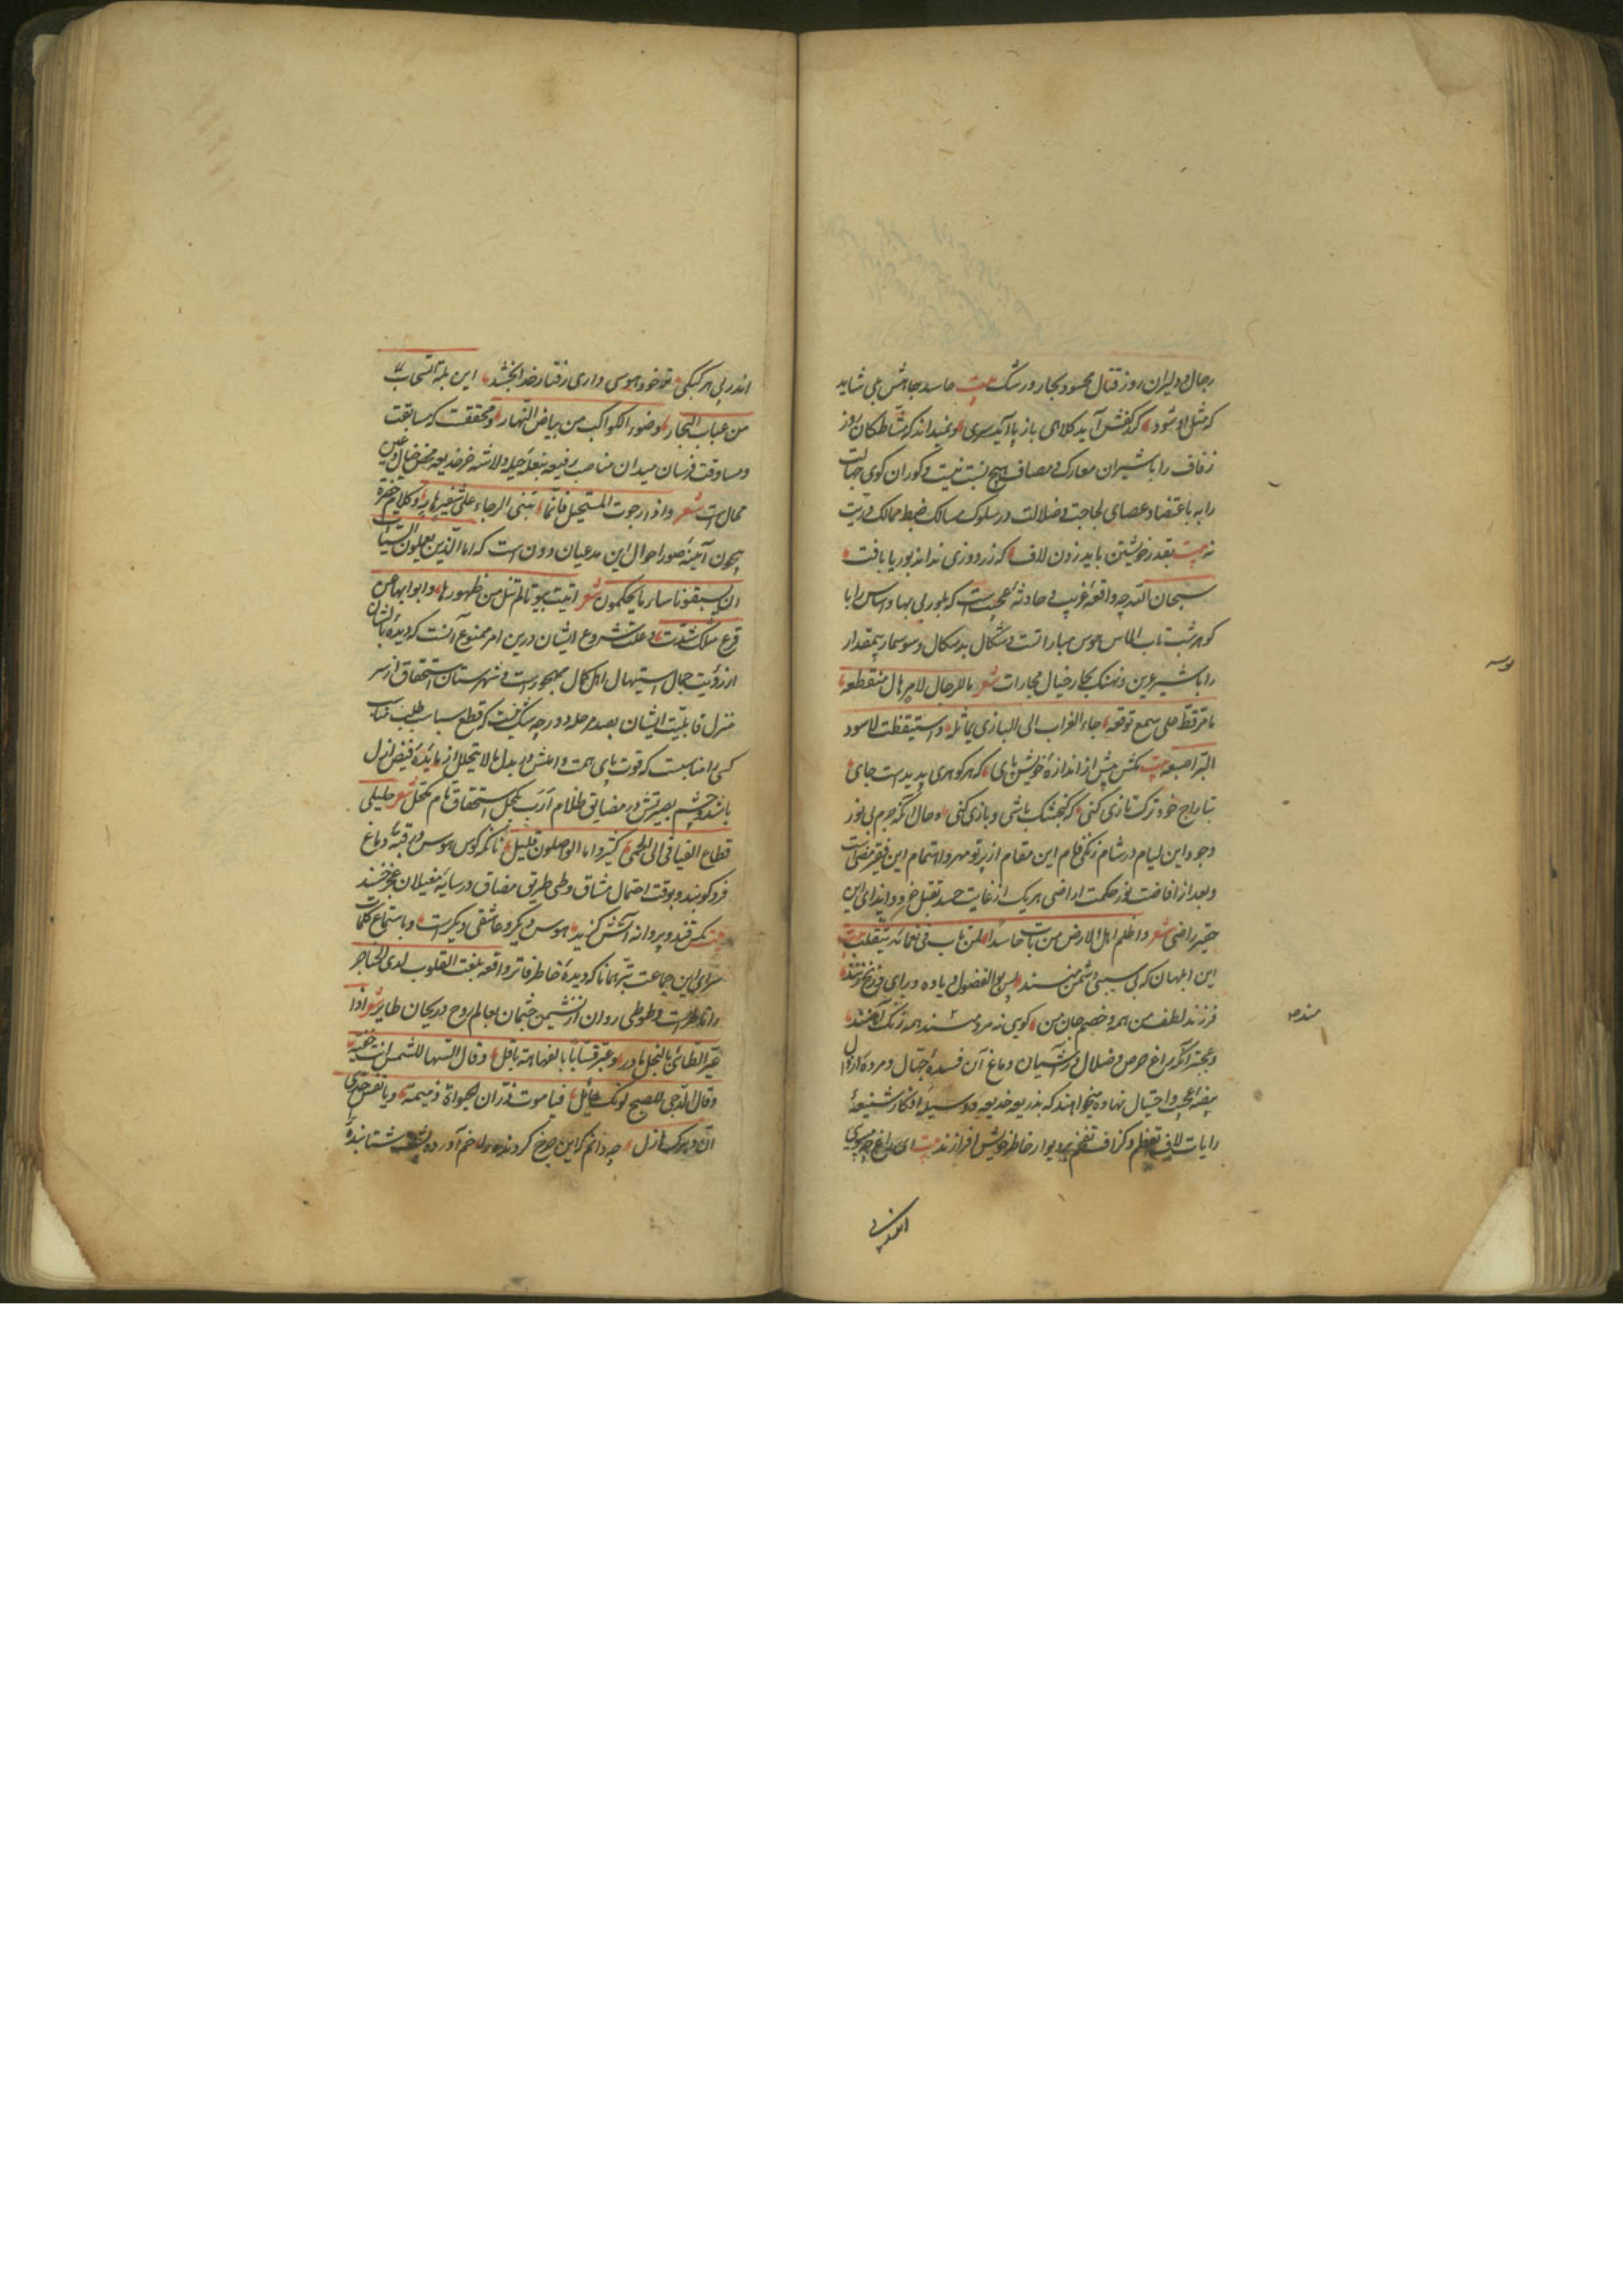 رجال و دلیران روز قتال محسود بحار و رشک بیت حاسد جاهش می شاید
که مثل او شود گر کفش آید کلاهی باز پا آید سری و نمیداند که مشاطگان روز
زفاف را با شیران معارک و مصاف هیچ نسبت نیست و کوران کوی جهالت
را به باعتضاد عصای لجاجت و ضلالت در سلوک مسالک ضبط ممالک دریت
نه بیت بقدر خویشتن باید زدن لاف که زردوزی نداند بوریا باف
سبحان الله چه واقعهٔ غریب و حادثهٔ عجیب است که بلور بی بها و اساس را با
کوهر شب تاب الماس هوس مبارات است و شکال بدسکال و سوسمار بیمقدار
را با شیر عرین و نهنک بحار خیال مجارات شعر ما للرجال لا بر هال منقطعه
ما مر قط علی سمع توقعه جاء الغراب الی البازی یماثله و استیقظت لاسود
البر اضبعه بیت مکش پیش از اندازهٔ خویش پای که هر کوهری پدیدست جای
بتاراج خود ترکتازی کنی که کنجشک باشی و بازی کنی و حال آنکه جرم بی نور
وجود این لیام در شام زنکی فام این مقام از پرتو مهر و اهتمام این فقیر مضی است
و بعد از افاضت نور حکمت اراضی هر یک از غایت حسد تقبل خ و و ایذای این
حقیر راضی شعر و اظلم اهل الارض من بات حاسدا لمن بات فی نعمائه یتقلب بیت
این ابلهان که بی سببی دشمن منند بس بو الفضول و یاوه درای و زنخ زنند
فرزند لطف من همه و خصم جان من کویی نه مردمند همه زنک آهنند
و عجبتر آنکه زاغ حرص و ضلال در آشیان دماغ آن فسدهٔ جهال و مردهٔ اراذل
بیضهٔ عجب و احتیال نهاده میخواهند که بذریعهٔ خدیعه و وسیلهٔ افکار شنیعه
رایات لاف تعظم و کزاف تفخم بر دیوار خاطر خویش افرازند بیت ای زاغ چه میپری
اندر پی
اندر پی هر کبکی تو خود هوسی داری رفتار خدا بخشد این بلة السحاب
من عباب البحار و ضوء الکواکب من بیاض النهار و محققست که مسابقت
و مساوقت فرسان میدان مناصب رفیعه بنعل حیله و لاشهٔ خر خدیعه محض خیال و عین
محال است شعر و اذا رجوت المستحیل فانما تبنی الرجاء علی شفیر هار و کلام حضرة
بیچون آینهٔ صور احوال این مدعیان دون است که ام الذین یعملون السیئات
ان یسبقونا ساء ما یحکمون شعر اتیت بیوتا لم تنل من ظهورها و ابوابها عن
قرع مثلک سدت و علت شروع ایشان درین امر ممنوع آنست که دیدهٔ بالشان
از رؤیت جمال استیهال اهل کمال مهجور است و شهرستان استحقاق از سر
منزل قابلیت ایشان بصد مرحله دور چه شک نیست که قطع سباسب طلب مناصب
کسی را مناسبست که قوت پای همت و املش در بدل ما لا یتحلل از مایدهٔ فیض ازل
باشد و چشم بصیرتش در مضایق ظلام ارب بکحل استحقاق تام مکحل شعر خلیلی
قطاع الفیافی الی الحمی کثیر و اما الواصلون قلیل نه آنکه کوس هوس در قبهٔ دماغ
فرو کوبند و بوقت احتمال مشاق و طی طریق مضاق در سایهٔ مغیلان عجز خسبند
بیت مکس قند و پروانه آتش کزید هوس دیکر و عاشقی دیکر است و باستماع کلمات
سرای این جماعت ترهات ناکردیدهٔ خاطر فاتر واقعهٔ بلغت القلوب لدی الحناجر
را ناظر است و طوطی روان از نشیمن جثمان بعالم روح و ریحان طایر شعر اذا
عیر الطائی بالبخل مادر و عیر قسا بالفهاهة باقل و قال السها للشمس انت خفیة
و قال الدجی للصبح لونک حائل فیا موت زر ان الحیوة ذمیمة و یا نفس جدی
ان دهرک هازل چه دانم که این چرخ کردنده خم آورده پشت شتابنده